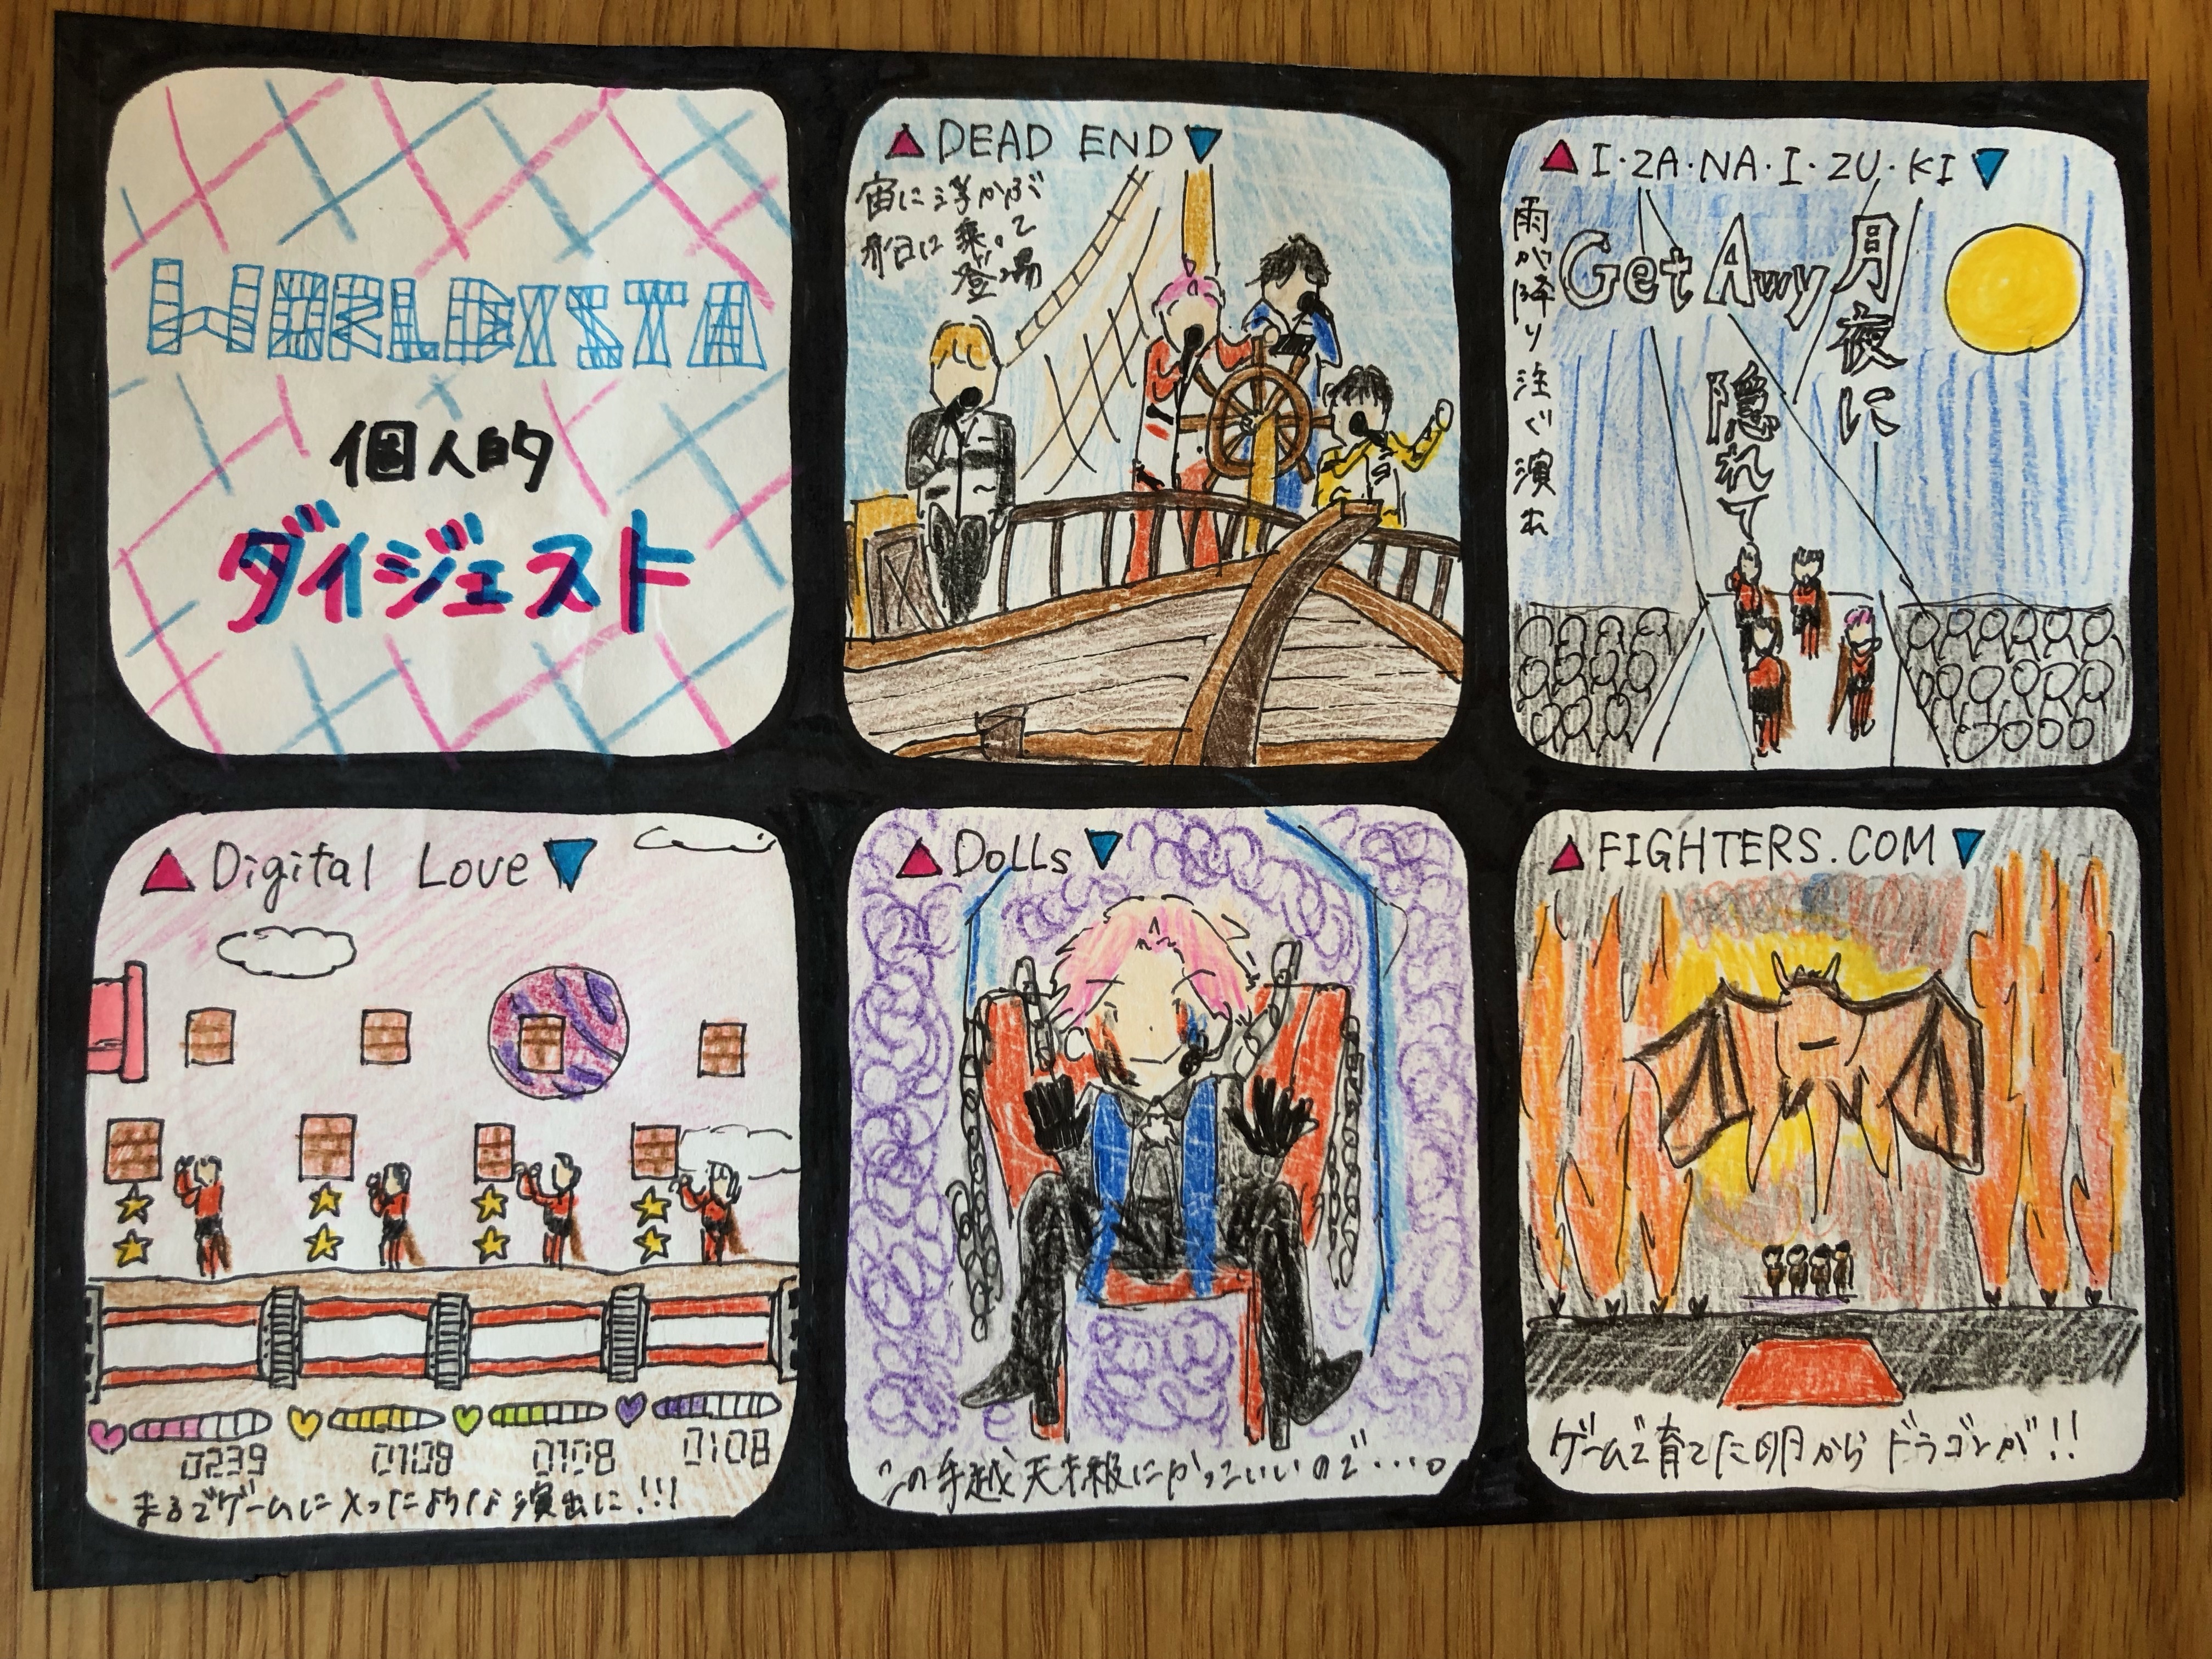 WORLDISTA
個人的
ダイジェスト
▲DEAD END▼
宙に浮かぶ
船に乗って
登場
▲I・ZA・NA・I・ZU・KI▼
雨が降り注ぐ演出
Get Awy
月夜に
隠れて
▲Digital Love▼
0239
0108
0108
0108
まるでゲームに入ったような演出に!!!
▲Dolls▼
この手越天才級にかっこいいので・・・。
▲FIGHTERS.COM▼
ゲームで育てた卵からドラゴンが!!